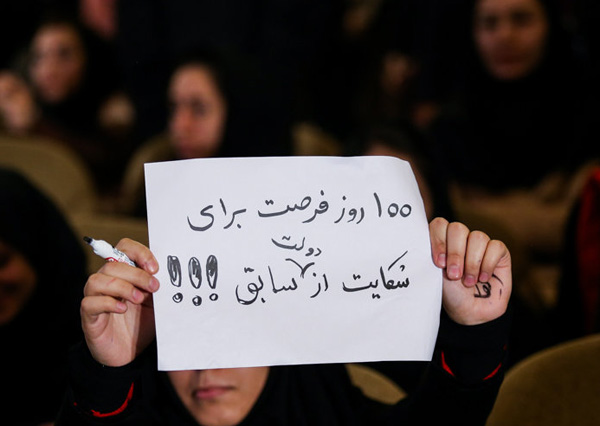 ۱۰۰ روز فرصت برای
شکایت از دولت سابق !!!